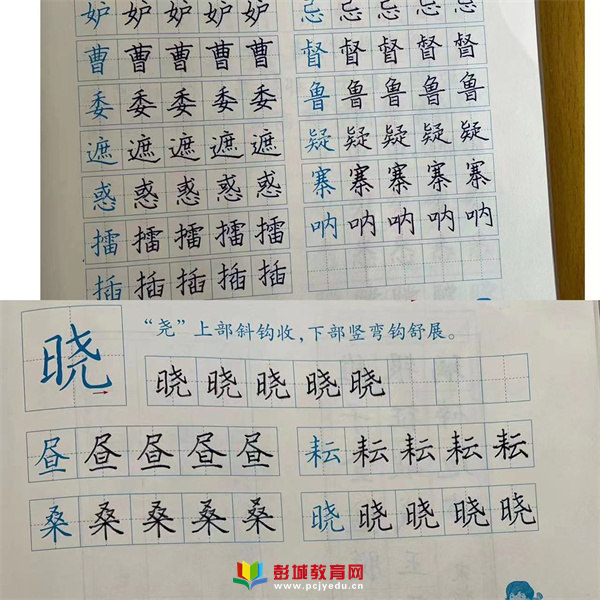 妒妒妒妒妒 忌忌忌忌忌
曹曹曹曹曹 督督督督督
委委委委委 鲁鲁鲁鲁鲁
遮遮遮遮遮 疑疑疑疑疑
惑惑惑惑惑 寨寨寨寨寨
擂擂擂擂擂 呐呐呐呐呐
插插插插插
“尧”上部斜钩收，下部竖弯钩舒展。
晓 晓晓晓晓晓
昼昼昼昼昼 耘耘耘耘耘
桑桑桑桑桑 晓晓晓晓晓
彭城教育网
www.pcjyedu.cn